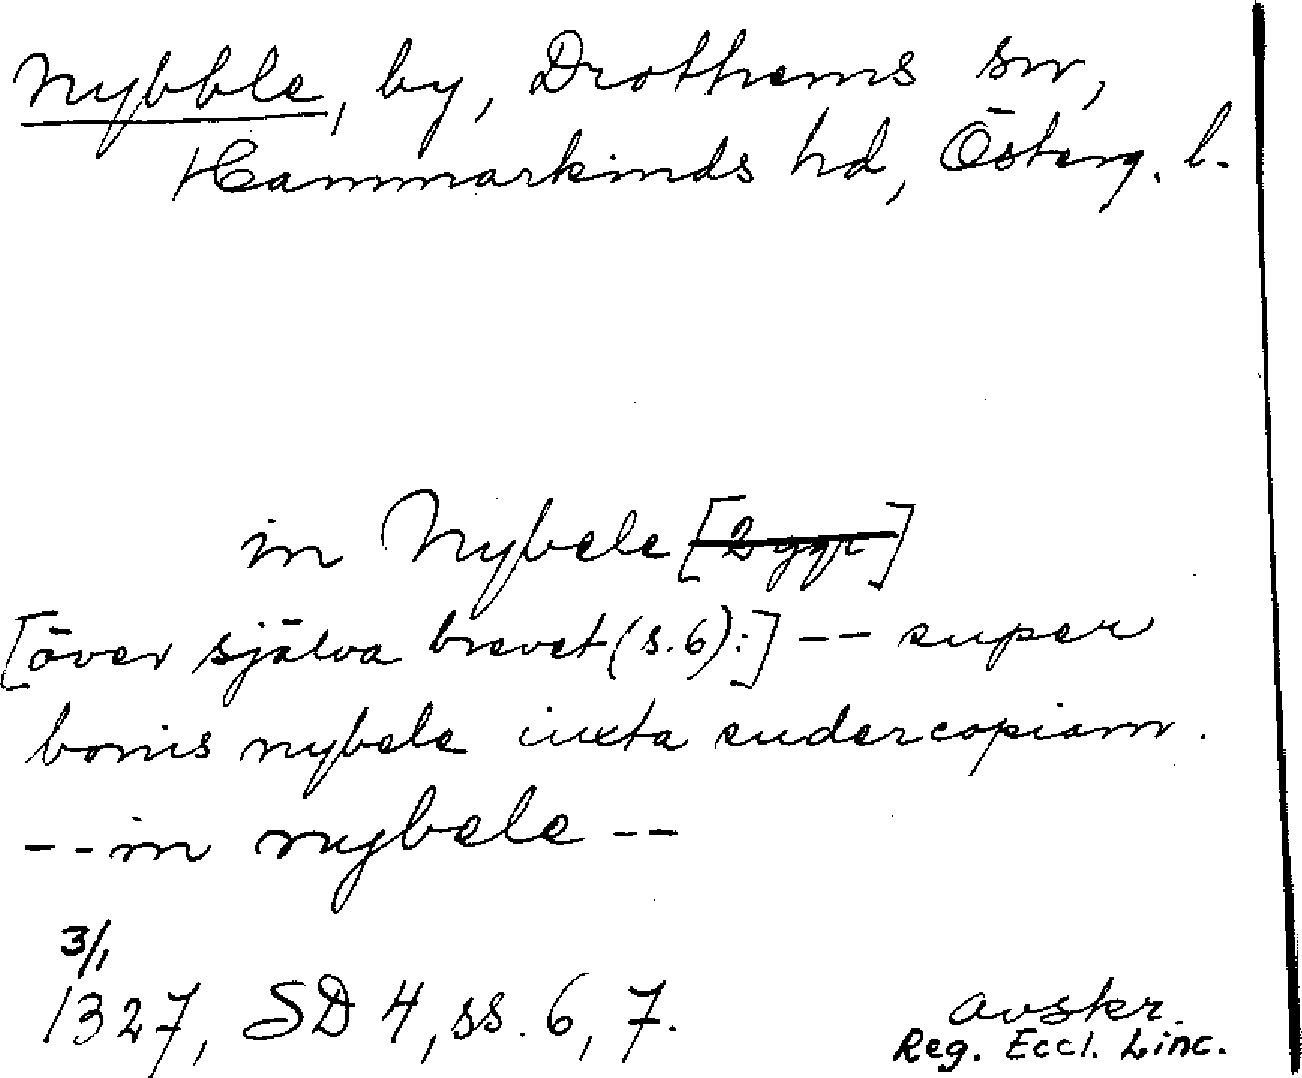 Nybble, by, Drothems sn,
Hammarkinds hd, Österg. l.
in Nybele [2 ggr]
[över själva brevet (s. 6):] -- super
bonis nybele iuxta sudercopiam.
-- in nybele --
3/1
1327, SD 4, ss. 6, 7.
avskr.
Reg. Eccl. Linc.